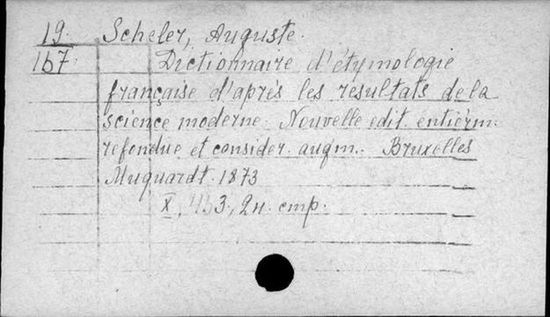 19. Scheler, Auguste.
167. Dictionnaire d'étymologie
française d'après les resultats de la
science moderne. Nouvelle edit. entièrm.
refondue et consider. augm. Bruxelles
Muquardt. 1873
X, 3, 2н. стр.